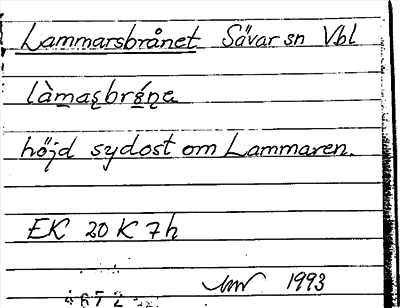 Lammarsbrånet Sävar sn Vbl
làmas̨brǻn̨e
höjd sydost om Lammaren.
EK 20 K 7h
1993
4672